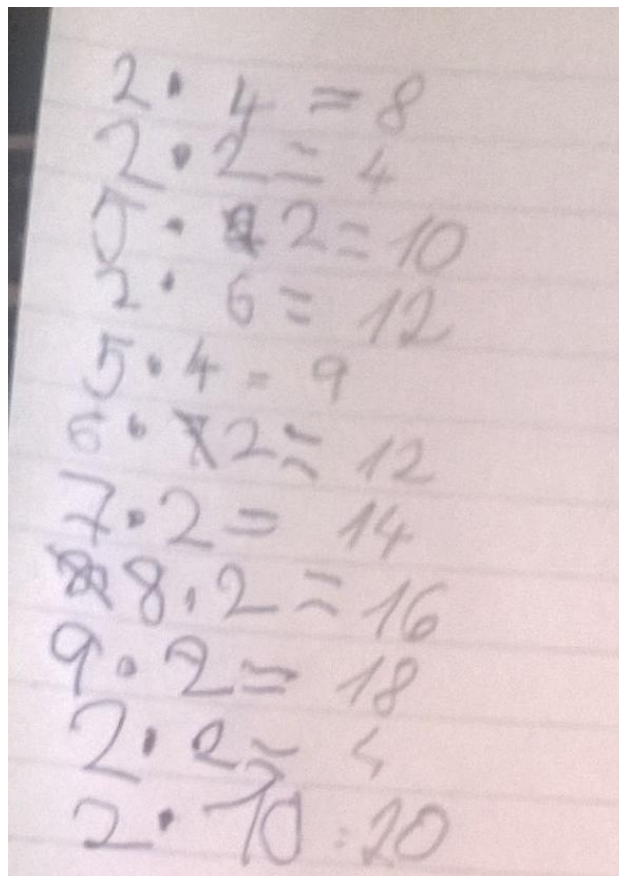 2 · 4 = 8
2 · 2 = 4
5 · 2 = 10
2 · 6 = 12
5 · 4 = 9
6 · 2 = 12
7 · 2 = 14
8 · 2 = 16
9 · 2 = 18
2 · 2 = 4
2 · 10 = 20